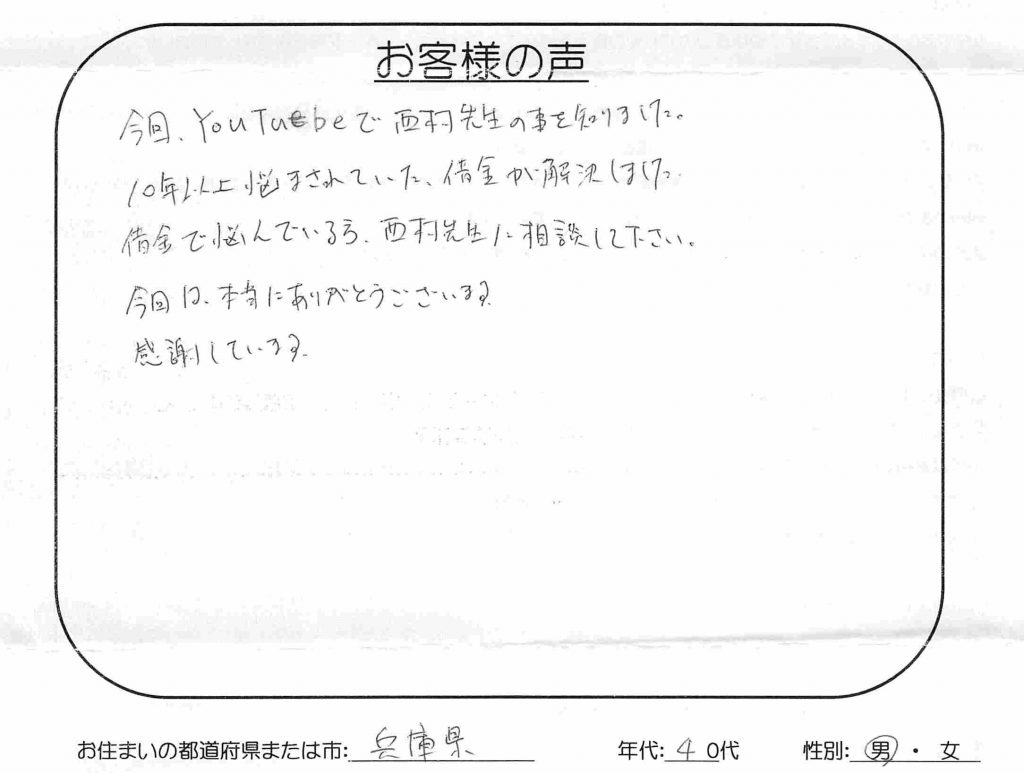 お客様の声
今回、YouTubeで西村先生の事を知りました。
10年以上悩まされていた、借金が解決しました
借金で悩んでいる方、西村先生に相談して下さい。
今回は、本当にありがとうございます
感謝しています。
お住まいの都道府県または市: 兵庫県 年代: 40代 性別: 男・女